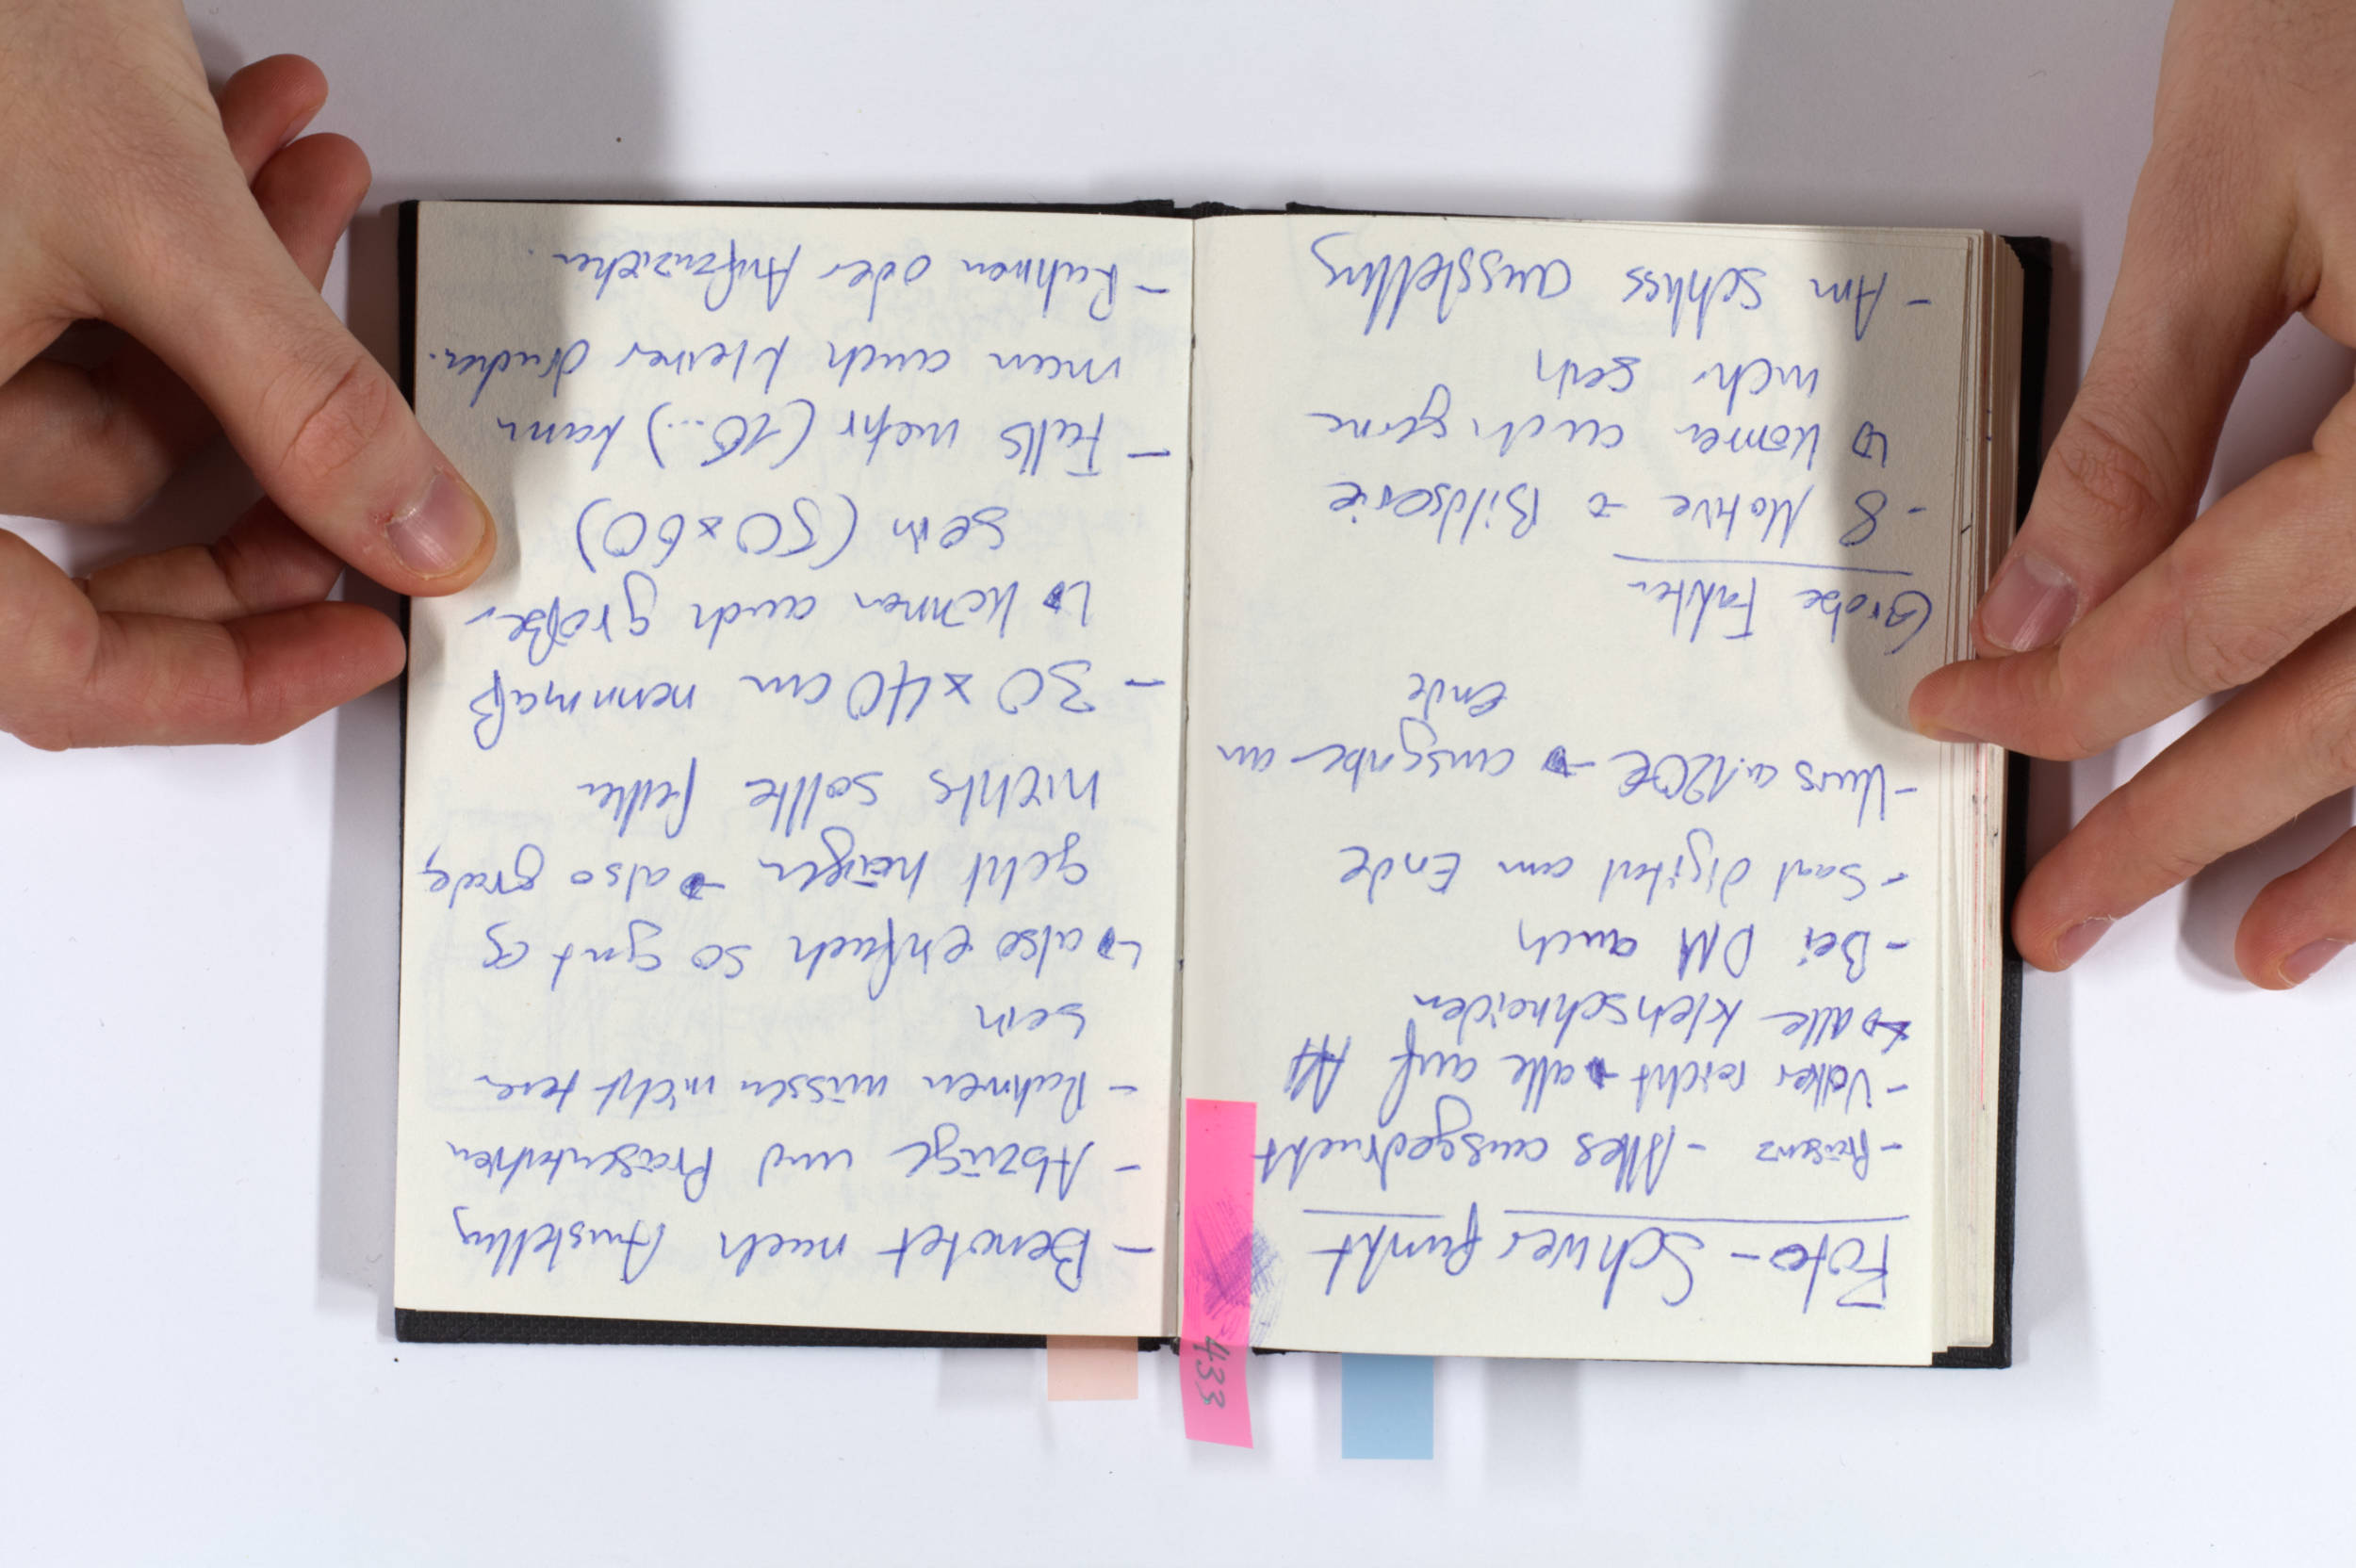 Foto-Schwerpunkt
- Präsenz - Alles ausgedruckt
- Volker reicht → alle auf A4
→ alle kleinschneiden
- Bei DM auch
- Samt digital am Ende
- Kurs ca. 120€ → ausgabe am
Ende
Grobe Fakten
- 8 Motive → Bildserie
↳ können auch gerne
mehr sein
- Am schluss ausstellung
- Benotet nach Ausstellung
- Abzüge und Präsentation
- Rahmen müssen nicht teuer
sein
↳ also einfach so gut es
geht hängen → also grade,
nichts sollte fehlen
- 30 x 40 cm nennmaß
↳ können auch größer
sein (50 x 60)
- Falls mehr (16...) kann
man auch kleiner drucken.
- Rahmen oder Aufzuziehen.
433